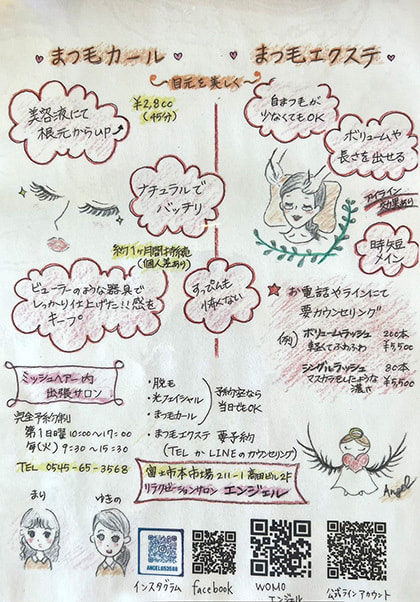 まつ毛カール
まつ毛エクステ
〜目元を楽しく〜
美容液にて
根元からUP
¥2,800
(45分)
ナチュラルで
バッチリ
約1ヶ月間持続
(個人差あり)
ビューラーのような器具で
しっかり仕上げた!!感を
キープ
自まつ毛が
少なくてもOK
ボリュームや
長さを出せる
アイライン
効果あり
時短
メイン
すっぴんも
怖くない
★お電話やラインにて
要カウンセリング
(例)
ボリュームラッシュ 200本
軽くてふわふわ ¥5,500
シングルラッシュ 80本
マスカラをしたような濃さ ¥5,500
ミッシュヘアー内
出張サロン
完全予約制
第1日曜 10:00〜17:00
毎(火) 9:30〜15:30
TEL 0545-65-3568
・脱毛
・光フェイシャル
・まつ毛カール
予約空なら
当日もOK
・まつ毛エクステ 要予約
(TEL か LINEのカウンセリング)
富士市本市場211-1 高田ビル2F
リラクゼーションサロン エンジェル
Angel
まり
ゆきの
ANGEL653568
インスタグラム
facebook
WOMO
エンジェル
公式ラインアカウント